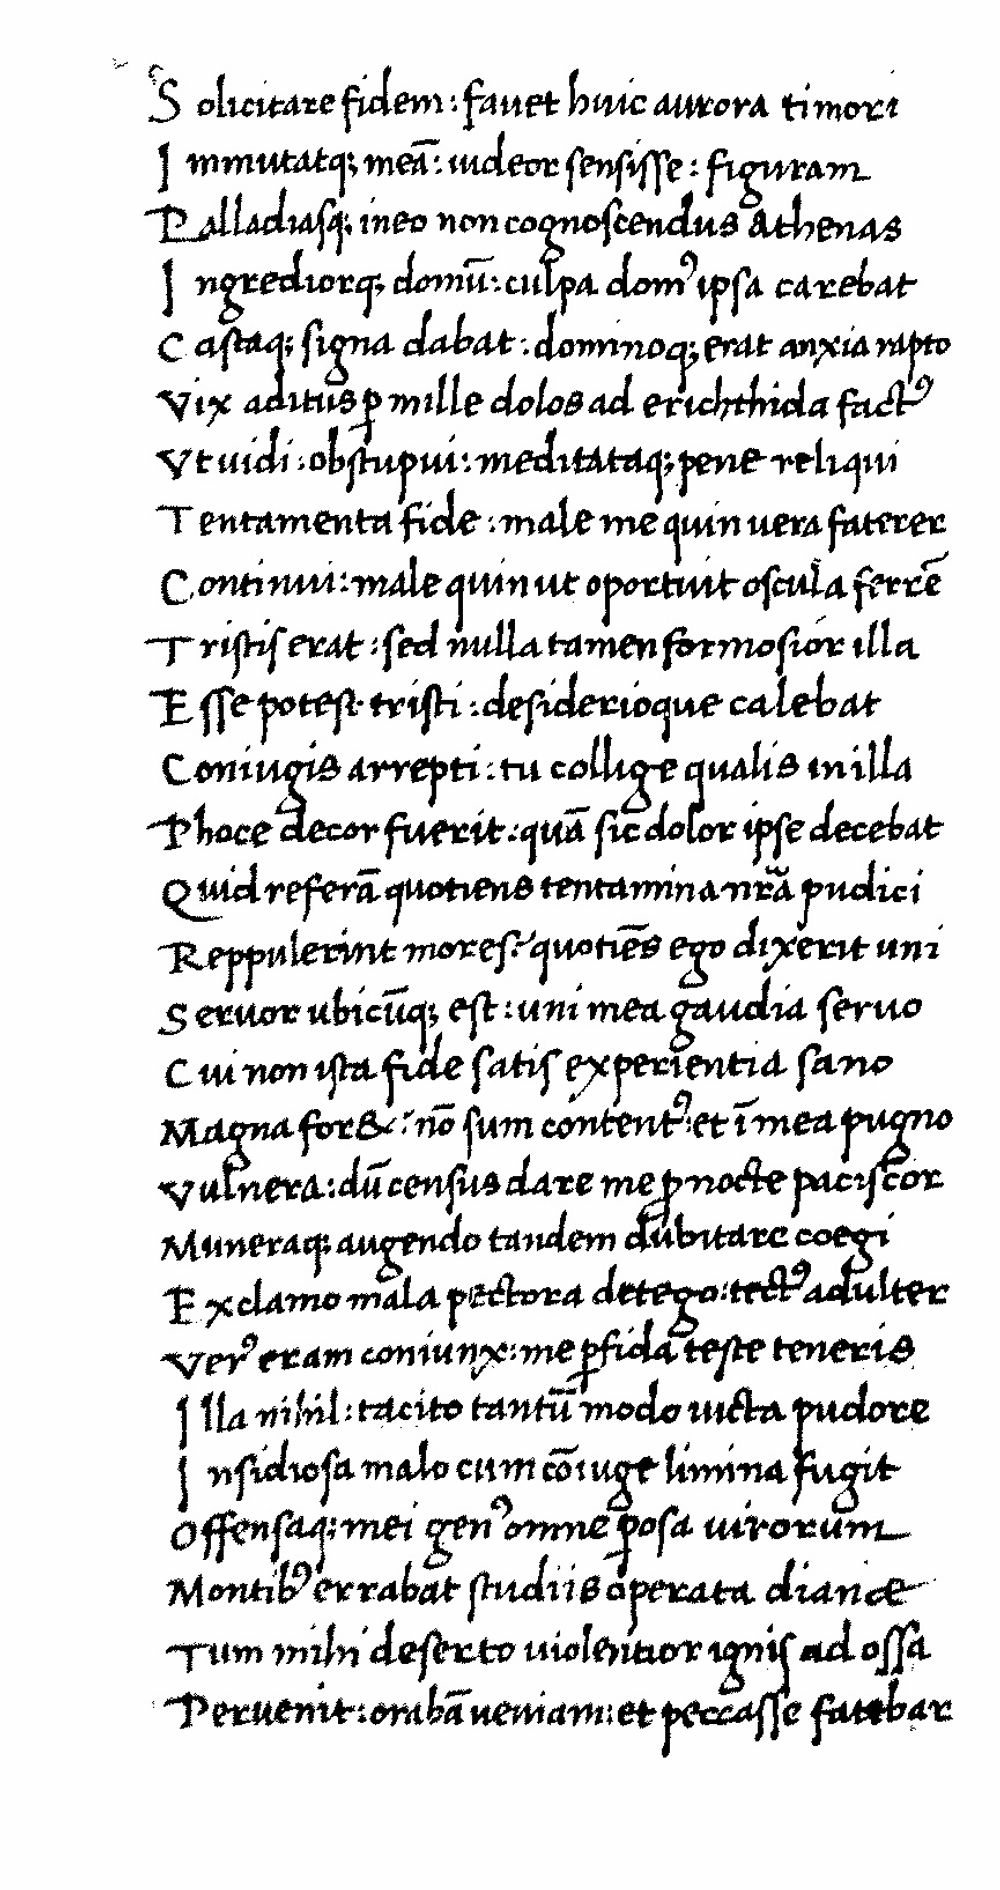 S olicitare fidem : fauet huic aurora timori
I mmutatq; meā : uideor sensisse : figuram
Palladiasq; ineo non cognoscendus Athenas
I ngrediorq; domū : culpa domꝰ ipsa carebat
C astaq; signa dabat : dominoq; erat anxia rapto
Vix aditus ꝑ mille dolos ad erichthida factꝰ
Vt uidi : obstupui : meditataq; pene reliqui
T entamenta fide : male me quin uera faterer
Continui : male quin ut oportuit oscula ferrē
T ristis erat : sed nulla tamen formosior illa
E sse potest tristi : desiderioque calebat
Coniugis arrepti : tu collige qualis in illa
Phoce decor fuerit : quā sic dolor ipse decebat
Quid referā quotiens tentamina nr̄ā pudici
Reppulerint mores ? quotiēs ego dixerit uni
S eruor ubicūq; est : uni mea gaudia seruo
C ui non ista fide satis experientia sano
Magna for& ? nō sum contentꝰ : et ī mea pugno
Vulnera : dū census dare me ꝑ nocte paciscor
Muneraq; augendo tandem dubitare coegi
E xclamo mala pectora detego : tectꝰ adulter
Verꝰ eram coniunx : me ꝑfida teste teneris
I lla nihil : tacito tantū modo uicta pudore
I nsidiosa malo cum cōiuge limina fugit
Offensaq; mei genꝰ omne ꝑosa uirorum
Montibꝰ errabat studiis operata dianæ
Tum mihi deserto uiolentior ignis ad ossa
Peruenit : orabā ueniam : et peccasse fatebar